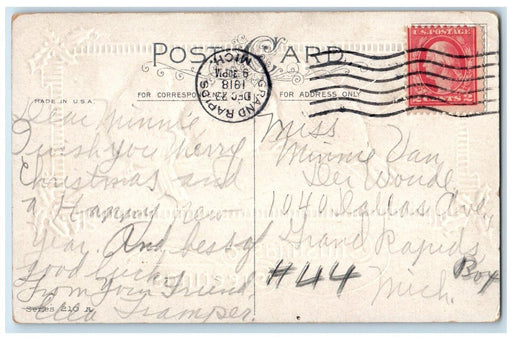 POST CARD
MADE IN U.S.A.
FOR CORRESPONDENCE
FOR ADDRESS ONLY
GRAND RAPIDS
MICH.
DEC
9 PM
1918
U.S. POSTAGE
2 CENTS 2
Dear Minnie
I wish you Merry
Christmas and
a Happy new
Year. And best of
Good luck.
From Your Friend,
Tramper.
Series 210 A
Miss
Minnie Van
Der Woude
1040 Dallas Ave,
Grand Rapids
#44 Mich. Box